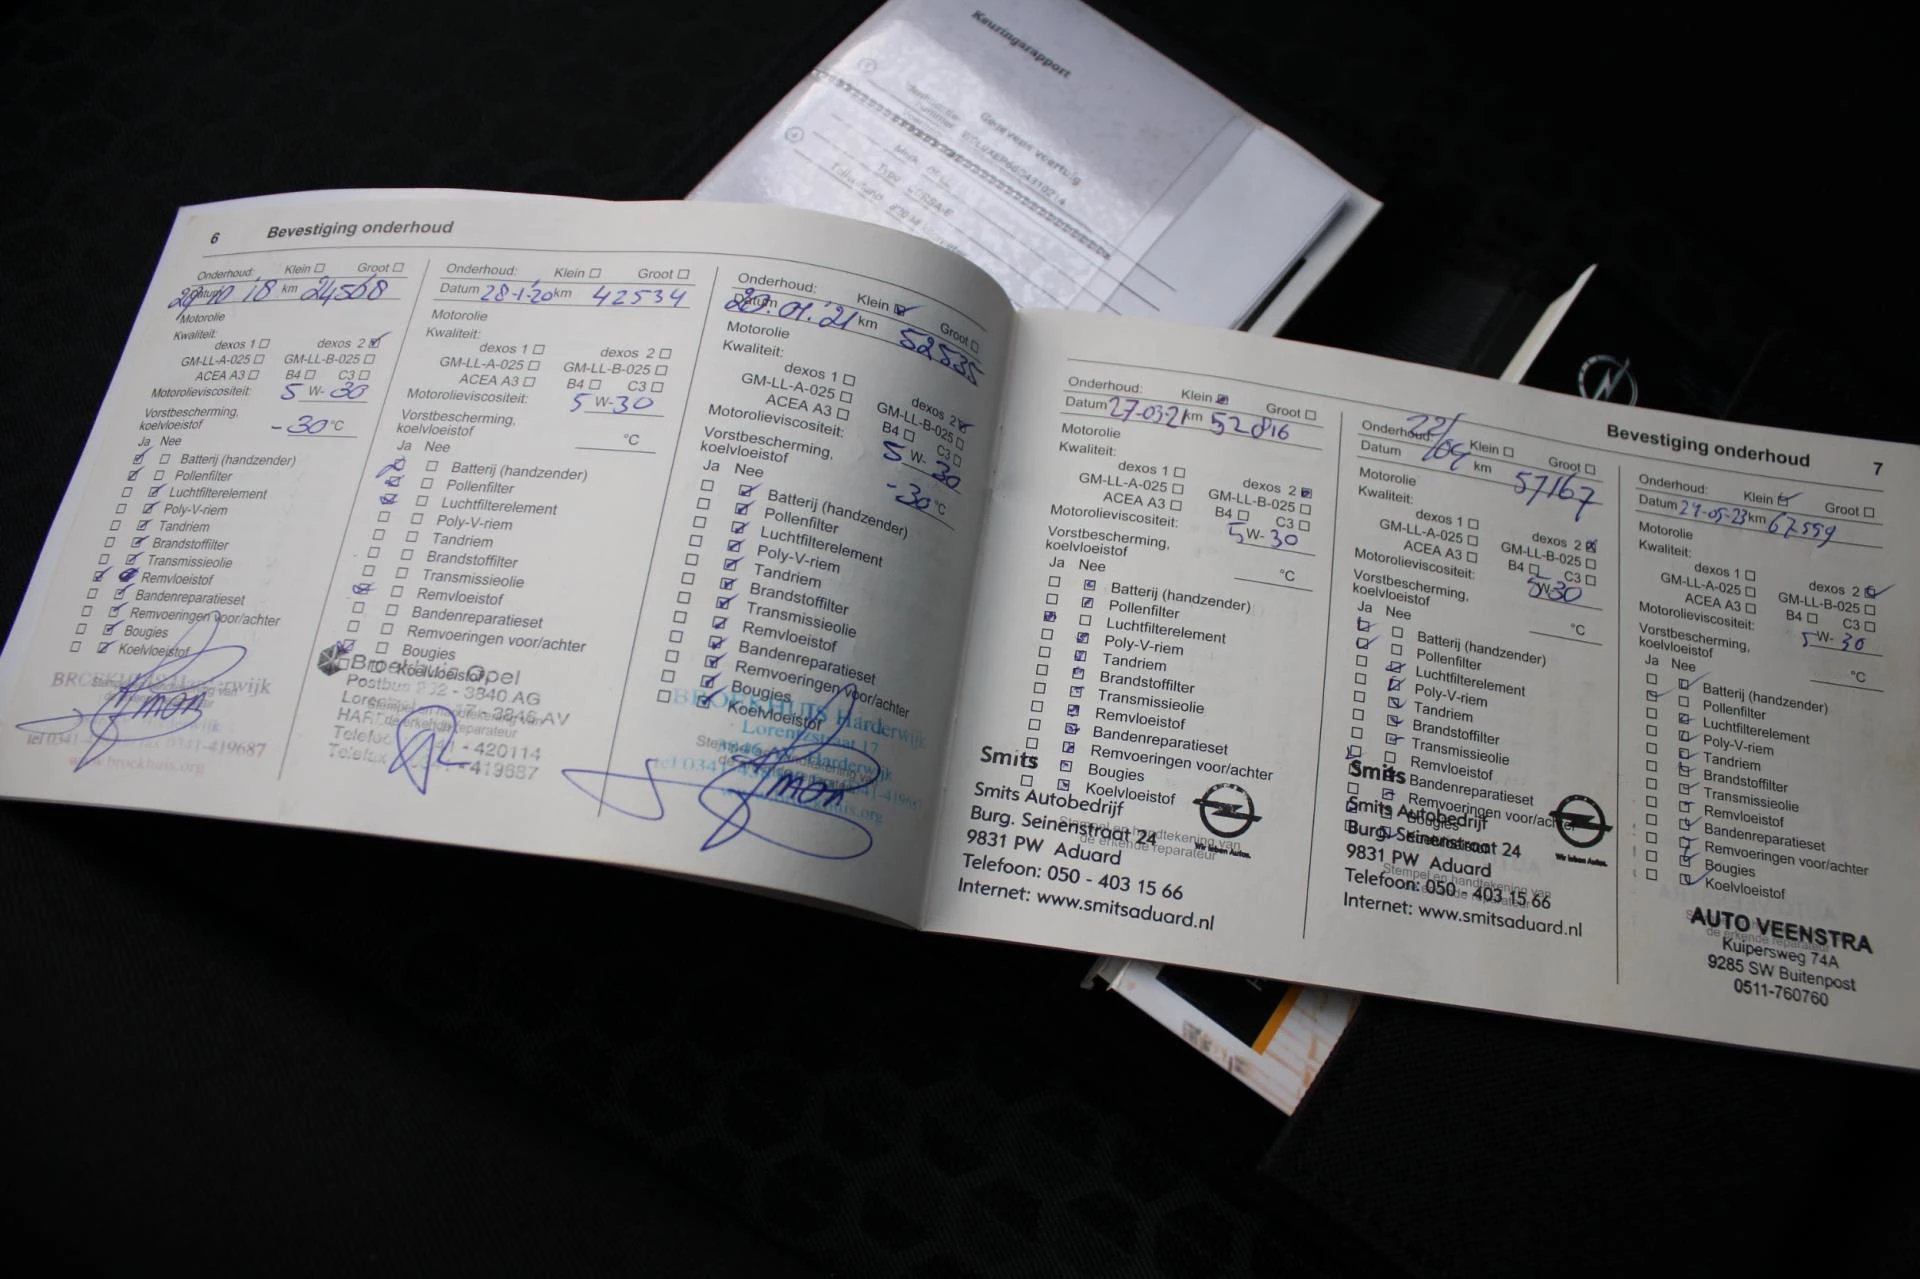 Keuringsrapport
Gegevens voertuig
Merk
Type CORSA-E
6 Bevestiging onderhoud
Onderhoud: Klein Groot
Datum '18 km 24568
Motorolie
Kwaliteit:
dexos 1 dexos 2
GM-LL-A-025 GM-LL-B-025
ACEA A3 B4 C3
Motorolieviscositeit: 5 W- 30
Vorstbescherming,
koelvloeistof -30 °C
Ja Nee
Batterij (handzender)
Pollenfilter
Luchtfilterelement
Poly-V-riem
Tandriem
Brandstoffilter
Transmissieolie
Remvloeistof
Bandenreparatieset
Remvoeringen voor/achter
Bougies
Koelvloeistof
BROEKHUIS Harderwijk
tel 0341- fax 0341-419687
www.broekhuis.org
Onderhoud: Klein Groot
Datum 28-1-'20 km 42534
Motorolie
Kwaliteit:
dexos 1 dexos 2
GM-LL-A-025 GM-LL-B-025
ACEA A3 B4 C3
Motorolieviscositeit: 5 W- 30
Vorstbescherming,
koelvloeistof °C
Ja Nee
Batterij (handzender)
Pollenfilter
Luchtfilterelement
Poly-V-riem
Tandriem
Brandstoffilter
Transmissieolie
Remvloeistof
Bandenreparatieset
Remvoeringen voor/achter
Bougies
Koelvloeistof
Broekhuis Opel
Postbus 202 - 3840 AG
- 3846 AV
Stempel en handtekening van
de erkende reparateur
- 420114
- 419687
Onderhoud: Klein Groot
Datum 20.01.'21 km 52535
Motorolie
Kwaliteit:
dexos 1 dexos 2
GM-LL-A-025 GM-LL-B-025
ACEA A3 B4 C3
Motorolieviscositeit: 5 W- 30
Vorstbescherming,
koelvloeistof -30 °C
Ja Nee
Batterij (handzender)
Pollenfilter
Luchtfilterelement
Poly-V-riem
Tandriem
Brandstoffilter
Transmissieolie
Remvloeistof
Bandenreparatieset
Remvoeringen voor/achter
Bougies
Koelvloeistof
BROEKHUIS Harderwijk
Lorentzstraat 17
Harderwijk
Bevestiging onderhoud 7
Onderhoud: Klein Groot
Datum 27-03-21 km 52816
Motorolie
Kwaliteit:
dexos 1 dexos 2
GM-LL-A-025 GM-LL-B-025
ACEA A3 B4 C3
Motorolieviscositeit: 5 W- 30
Vorstbescherming,
koelvloeistof °C
Ja Nee
Batterij (handzender)
Pollenfilter
Luchtfilterelement
Poly-V-riem
Tandriem
Brandstoffilter
Transmissieolie
Remvloeistof
Bandenreparatieset
Remvoeringen voor/achter
Bougies
Koelvloeistof
Stempel en handtekening van
de erkende reparateur
Smits
Smits Autobedrijf
Burg. Seinenstraat 24
9831 PW Aduard
Telefoon: 050 - 403 15 66
Internet: www.smitsaduard.nl
Wir leben Autos.
Onderhoud: Klein Groot
Datum 22/04 km 57167
Motorolie
Kwaliteit:
dexos 1 dexos 2
GM-LL-A-025 GM-LL-B-025
ACEA A3 B4 C3
Motorolieviscositeit: 5 W- 30
Vorstbescherming,
koelvloeistof °C
Ja Nee
Batterij (handzender)
Pollenfilter
Luchtfilterelement
Poly-V-riem
Tandriem
Brandstoffilter
Transmissieolie
Remvloeistof
Bandenreparatieset
Remvoeringen voor/achter
Bougies
Stempel en handtekening van
Smits
Smits Autobedrijf
Burg. Seinenstraat 24
9831 PW Aduard
Telefoon: 050 - 403 15 66
Internet: www.smitsaduard.nl
Wir leben Autos.
Onderhoud: Klein Groot
Datum 24-05-23 km 62559
Motorolie
Kwaliteit:
dexos 1 dexos 2
GM-LL-A-025 GM-LL-B-025
ACEA A3 B4 C3
Motorolieviscositeit: 5 W- 30
Vorstbescherming,
koelvloeistof °C
Ja Nee
Batterij (handzender)
Pollenfilter
Luchtfilterelement
Poly-V-riem
Tandriem
Brandstoffilter
Transmissieolie
Remvloeistof
Bandenreparatieset
Remvoeringen voor/achter
Bougies
Koelvloeistof
de erkende reparateur
AUTO VEENSTRA
Kuipersweg 74A
9285 SW Buitenpost
0511-760760